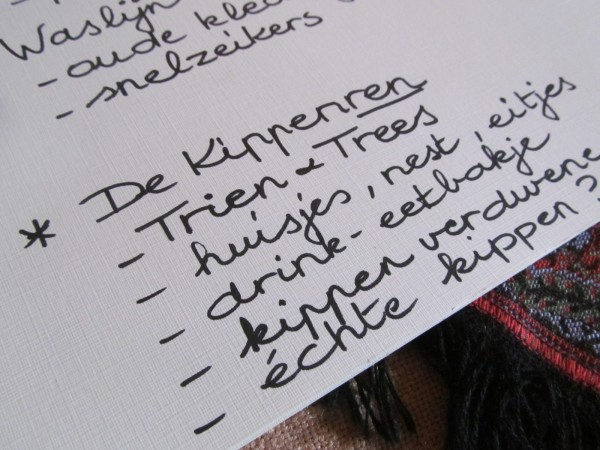 Waslijn
- oude kle
- snelzeikers
* De Kippenren
- Trien & Trees
- huisjes, nest, eitjes
- drink- eetbakje
- kippen verdwene
- échte kippen?